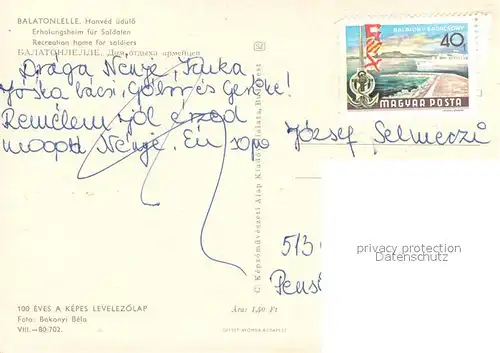 BALATONLELLE. Honvéd üdülő
Erholungsheim für Soldaten
Recreation home for soldiers
БАЛАТОНЛЕЛЛЕ. Дом отдыха армейцев
Drága Nénje, Jánka,
Jóska bácsi, Gabi és Geréke!
Remélem jól érzed
magad Nénje. Én
József Selmeczi
BALATON-BADACSONY
40f
MAGYAR POSTA
C. Képzőművészeti Alap Kiadóvállalata, Budapest
513
privacy protection
Datenschutz
100 ÉVES A KÉPES LEVELEZŐLAP
Foto: Bakonyi Béla
VIII.—80.702.
Ára: 1,50 Ft
OFFSET-NYOMDA BUDAPEST